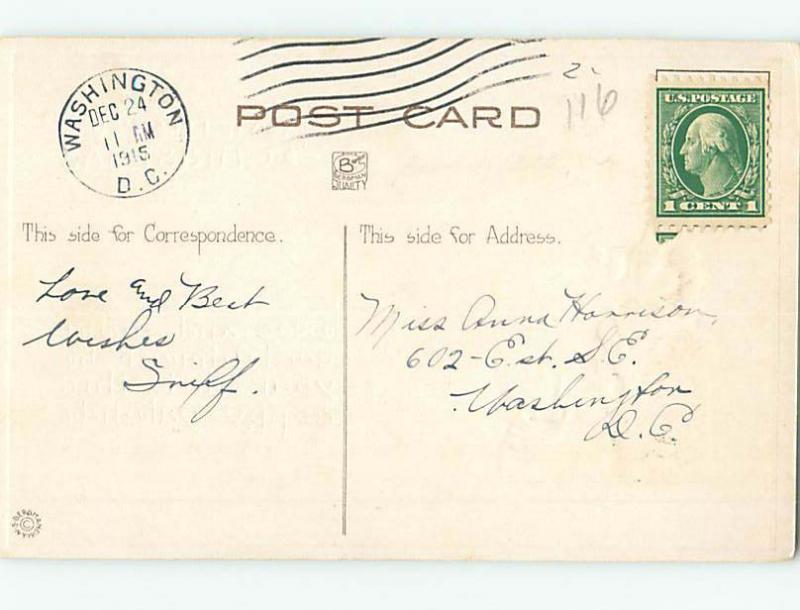 WASHINGTON
DEC 24
11 AM
1915
D.C.
POST CARD
2-
116
U.S. POSTAGE
1 CENT 1
BERGMAN
QUALITY
This side for Correspondence.
This side for Address.
Love and Best
Wishes
Sniff.
Miss Anna Harrison,
602 - E. st. S.E.
Washington
D.C.